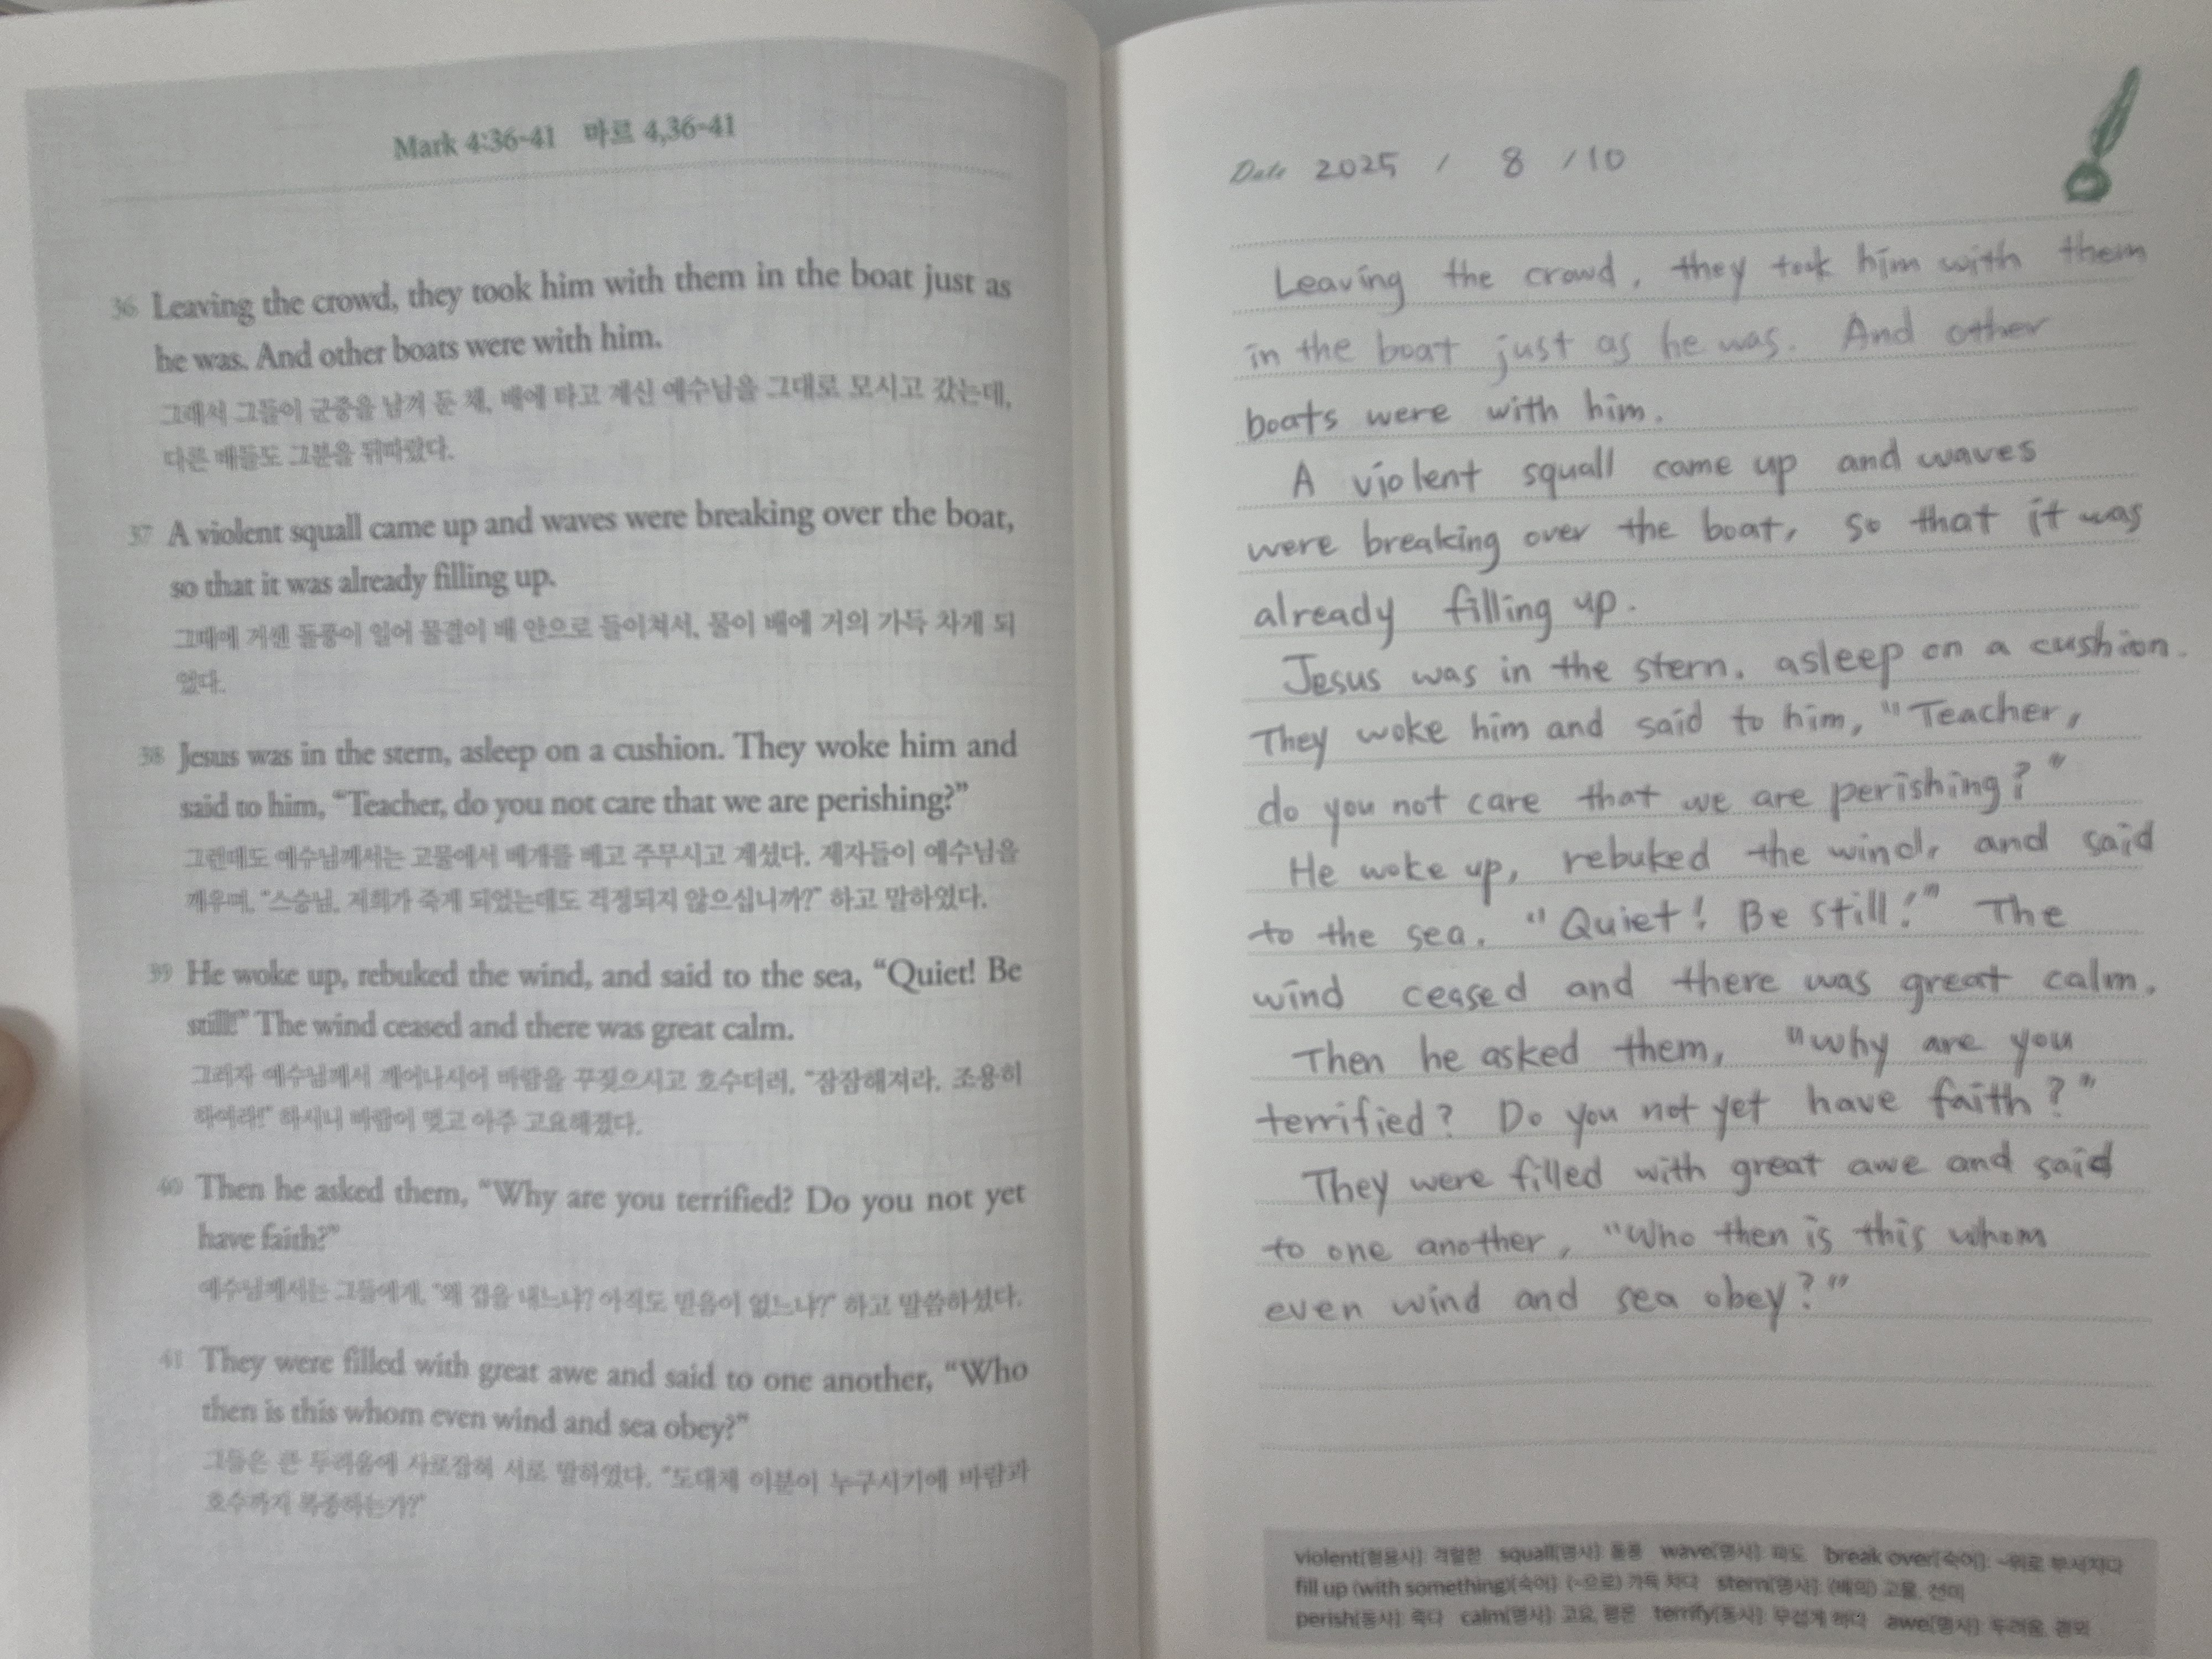 Mark 4:36-41 마르 4,36-41
36 Leaving the crowd, they took him with them in the boat just as
he was. And other boats were with him.
그래서 그들이 군중을 남겨 둔 채, 배에 타고 계신 예수님을 그대로 모시고 갔는데,
다른 배들도 그분을 뒤따랐다.
37 A violent squall came up and waves were breaking over the boat,
so that it was already filling up.
그때에 거센 돌풍이 일어 물결이 배 안으로 들이쳐서, 물이 배에 거의 가득 차게 되
었다.
38 Jesus was in the stern, asleep on a cushion. They woke him and
said to him, “Teacher, do you not care that we are perishing?”
그런데도 예수님께서는 고물에서 베개를 베고 주무시고 계셨다. 제자들이 예수님을
깨우며, “스승님, 저희가 죽게 되었는데도 걱정되지 않으십니까?” 하고 말하였다.
39 He woke up, rebuked the wind, and said to the sea, “Quiet! Be
still!” The wind ceased and there was great calm.
그러자 예수님께서 깨어나시어 바람을 꾸짖으시고 호수더러, “잠잠해져라. 조용히
하여라!” 하시니 바람이 멎고 아주 고요해졌다.
40 Then he asked them, “Why are you terrified? Do you not yet
have faith?”
예수님께서는 그들에게, “왜 겁을 내느냐? 아직도 믿음이 없느냐?” 하고 말씀하셨다.
41 They were filled with great awe and said to one another, “Who
then is this whom even wind and sea obey?”
그들은 큰 두려움에 사로잡혀 서로 말하였다. “도대체 이분이 누구시기에 바람과
호수까지 복종하는가?”
Date 2025 / 8 / 10
Leaving the crowd, they took him with them
in the boat just as he was. And other
boats were with him.
A violent squall came up and waves
were breaking over the boat, so that it was
already filling up.
Jesus was in the stern, asleep on a cushion.
They woke him and said to him, "Teacher,
do you not care that we are perishing?"
He woke up, rebuked the wind, and said
to the sea, "Quiet! Be still!" The
wind ceased and there was great calm.
Then he asked them, "why are you
terrified? Do you not yet have faith?"
They were filled with great awe and said
to one another, "Who then is this whom
even wind and sea obey?"
violent[형용사]: 격렬한 squall[명사]: 돌풍 wave[명사]: 파도 break over[숙어]: ~위로 부서지다
fill up (with something)[숙어]: (~으로) 가득 차다 stern[명사]: (배의) 고물, 선미
perish[동사]: 죽다 calm[명사]: 고요, 평온 terrify[동사]: 무섭게 하다 awe[명사]: 두려움, 경외